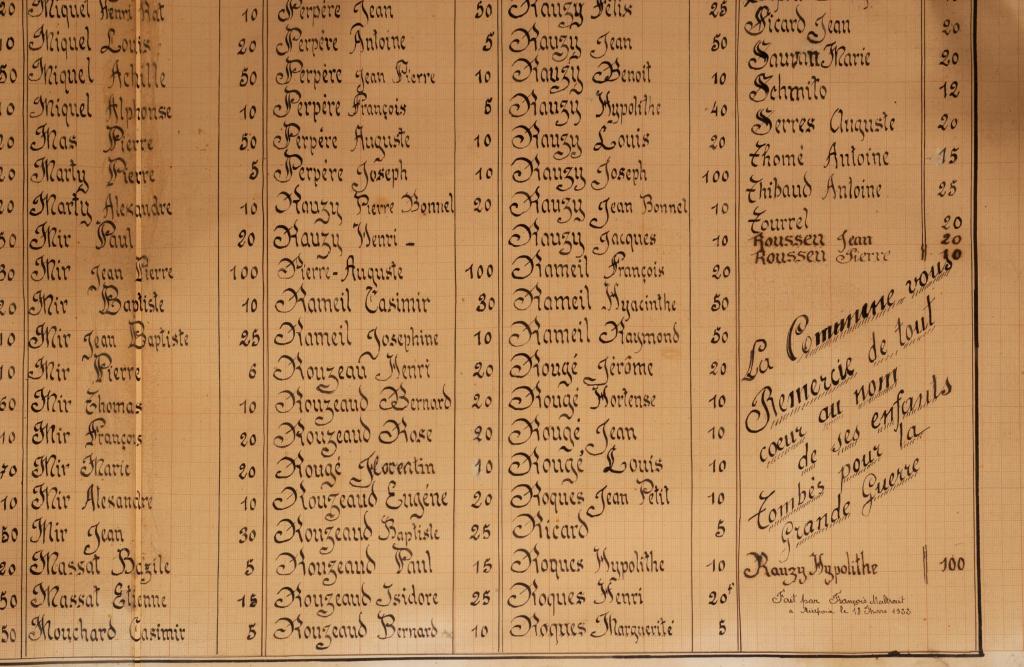 20 Miquel Henri Rat 10
10 Miquel Louis 20
50 Miquel Achille 50
10 Miquel Alphonse 10
20 Mas Pierre 50
20 Marty Pierre 5
20 Marty Alexandre 10
50 Mir Paul 20
30 Mir Jean Pierre 100
20 Mir Baptiste 10
10 Mir Jean Baptiste 25
10 Mir Pierre 6
60 Mir Thomas 10
10 Mir François 20
Mir Marie 20
10 Mir Alexandre 10
50 Mir Jean 30
20 Massat Bazile 5
50 Massat Etienne 15
50 Mouchard Casimir 5
Perpère Jean 50
Perpère Antoine 5
Perpère Jean Pierre 10
Perpère François 5
Perpère Auguste 10
Perpère Joseph 10
Rauzy Pierre Bonnel 20
Rauzy Henri -
Pierre-Auguste 100
Rameil Casimir 30
Rameil Josephine 10
Rouzeau Henri 20
Rouzeaud Bernard 20
Rouzeaud Rose 20
Rougé Florentin 10
Rouzeaud Eugéne 20
Rouzeaud Baptiste 25
Rouzeaud Paul 15
Rouzeaud Isidore 25
Rouzeaud Bernard 10
Rauzy Félix 25
Rauzy Jean 50
Rauzy Benoit 10
Rauzy Hypolithe 40
Rauzy Louis 20
Rauzy Joseph 100
Rauzy Jean Bonnel 10
Rauzy Jacques 10
Rameil François 20
Rameil Hyacinthe 50
Rameil Raymond 50
Rougé Jérôme 20
Rougé Hortense 10
Rougé Jean 10
Rougé Louis 10
Roques Jean Petit 10
Ricard 5
Roques Hypolithe 10
Roques Henri 20f
Roques Marguerité 5
Picard Jean 20
Saurin Marie 20
Schmito 12
Serres Auguste 20
Thomé Antoine 15
Thibaud Antoine 25
Tourrel 20
Rousseu Jean 20
Rousseu Pierre 10
La Commune vous
Remercie de tout
cœur au nom
de ses enfants
Tombés pour la
Grande Guerre
Rauzy Hypolithe 100
Fait par François
a le 13 Mars 1932